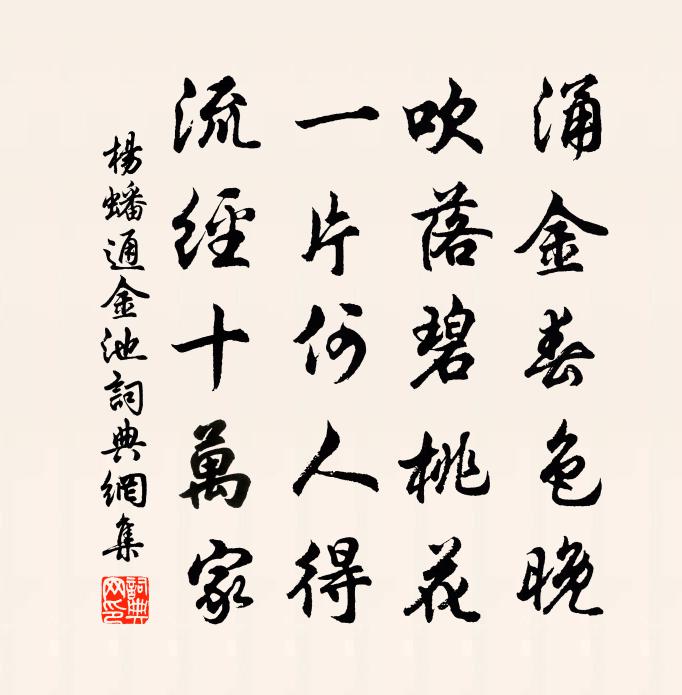 涌金春色晚
吹落碧桃花
一片何人得
流經十萬家
楊蟠通金池詞典網集
詞典網印